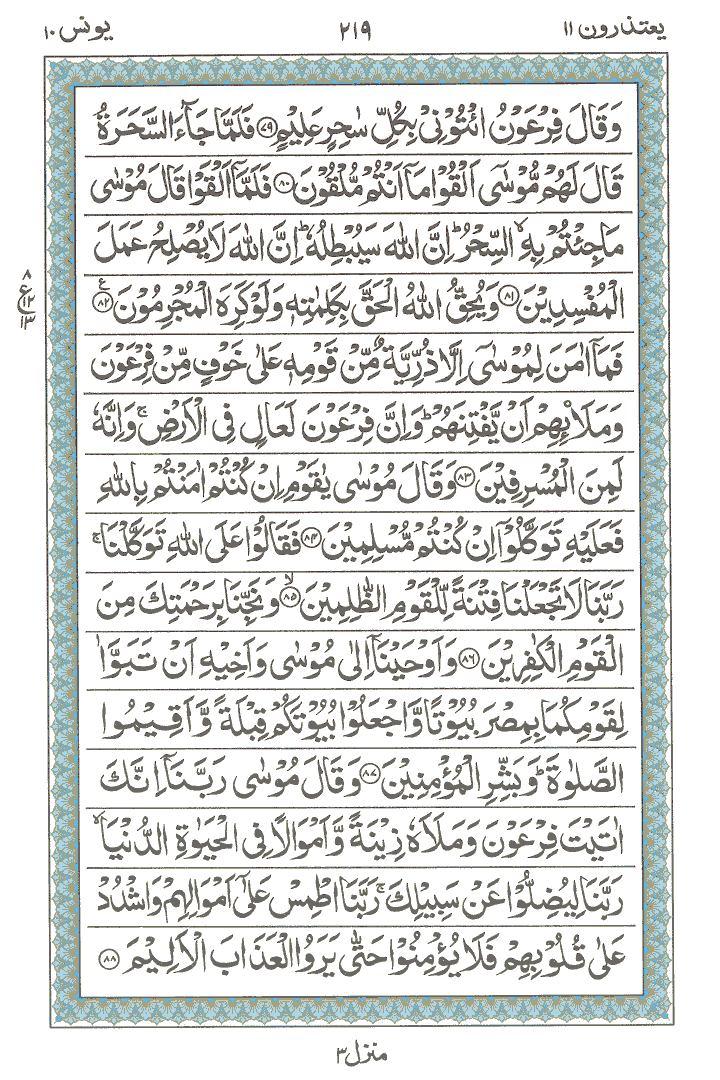 یعتذرون ۱۱ ۲۱۹ یونس ۱۰
وَقَالَ فِرْعَوْنُ ائْتُوْنِیْ بِكُلِّ سٰحِرٍ عَلِیْمٍ ۷۹ فَلَمَّا جَآءَ السَّحَرَةُ
قَالَ لَهُمْ مُّوْسٰۤی اَلْقُوْا مَاۤ اَنْتُمْ مُّلْقُوْنَ ۸۰ فَلَمَّاۤ اَلْقَوْا قَالَ مُوْسٰی
مَا جِئْتُمْ بِهِ ۙ السِّحْرُ ؕ اِنَّ اللّٰهَ سَیُبْطِلُهٗ ؕ اِنَّ اللّٰهَ لَا یُصْلِحُ عَمَلَ
الْمُفْسِدِیْنَ ۸۱ وَیُحِقُّ اللّٰهُ الْحَقَّ بِكَلِمٰتِهٖ وَلَوْ كَرِهَ الْمُجْرِمُوْنَ ۸۲ ع
۸ ع ۱۲ ۱۳
فَمَاۤ اٰمَنَ لِمُوْسٰۤی اِلَّا ذُرِّیَّةٌ مِّنْ قَوْمِهٖ عَلٰی خَوْفٍ مِّنْ فِرْعَوْنَ
وَمَلَا۟ئِهِمْ اَنْ یَّفْتِنَهُمْ ؕ وَاِنَّ فِرْعَوْنَ لَعَالٍ فِی الْاَرْضِ ۚ وَاِنَّهٗ
لَمِنَ الْمُسْرِفِیْنَ ۸۳ وَقَالَ مُوْسٰی یٰقَوْمِ اِنْ كُنْتُمْ اٰمَنْتُمْ بِاللّٰهِ
فَعَلَیْهِ تَوَكَّلُوْۤا اِنْ كُنْتُمْ مُّسْلِمِیْنَ ۸۴ فَقَالُوْا عَلَی اللّٰهِ تَوَكَّلْنَا ۚ
رَبَّنَا لَا تَجْعَلْنَا فِتْنَةً لِّلْقَوْمِ الظّٰلِمِیْنَ ۙ ۸۵ وَنَجِّنَا بِرَحْمَتِكَ مِنَ
الْقَوْمِ الْكٰفِرِیْنَ ۸۶ وَاَوْحَیْنَاۤ اِلٰی مُوْسٰی وَاَخِیْهِ اَنْ تَبَوَّاٰ
لِقَوْمِكُمَا بِمِصْرَ بُیُوْتًا وَّاجْعَلُوْا بُیُوْتَكُمْ قِبْلَةً وَّاَقِیْمُوا
الصَّلٰوةَ ؕ وَبَشِّرِ الْمُؤْمِنِیْنَ ۸۷ وَقَالَ مُوْسٰی رَبَّنَاۤ اِنَّكَ
اٰتَیْتَ فِرْعَوْنَ وَمَلَاَهٗ زِیْنَةً وَّاَمْوَالًا فِی الْحَیٰوةِ الدُّنْیَا ۙ
رَبَّنَا لِیُضِلُّوْا عَنْ سَبِیْلِكَ ۚ رَبَّنَا اطْمِسْ عَلٰۤی اَمْوَالِهِمْ وَاشْدُدْ
عَلٰی قُلُوْبِهِمْ فَلَا یُؤْمِنُوْا حَتّٰی یَرَوُا الْعَذَابَ الْاَلِیْمَ ۸۸
منزل ۳